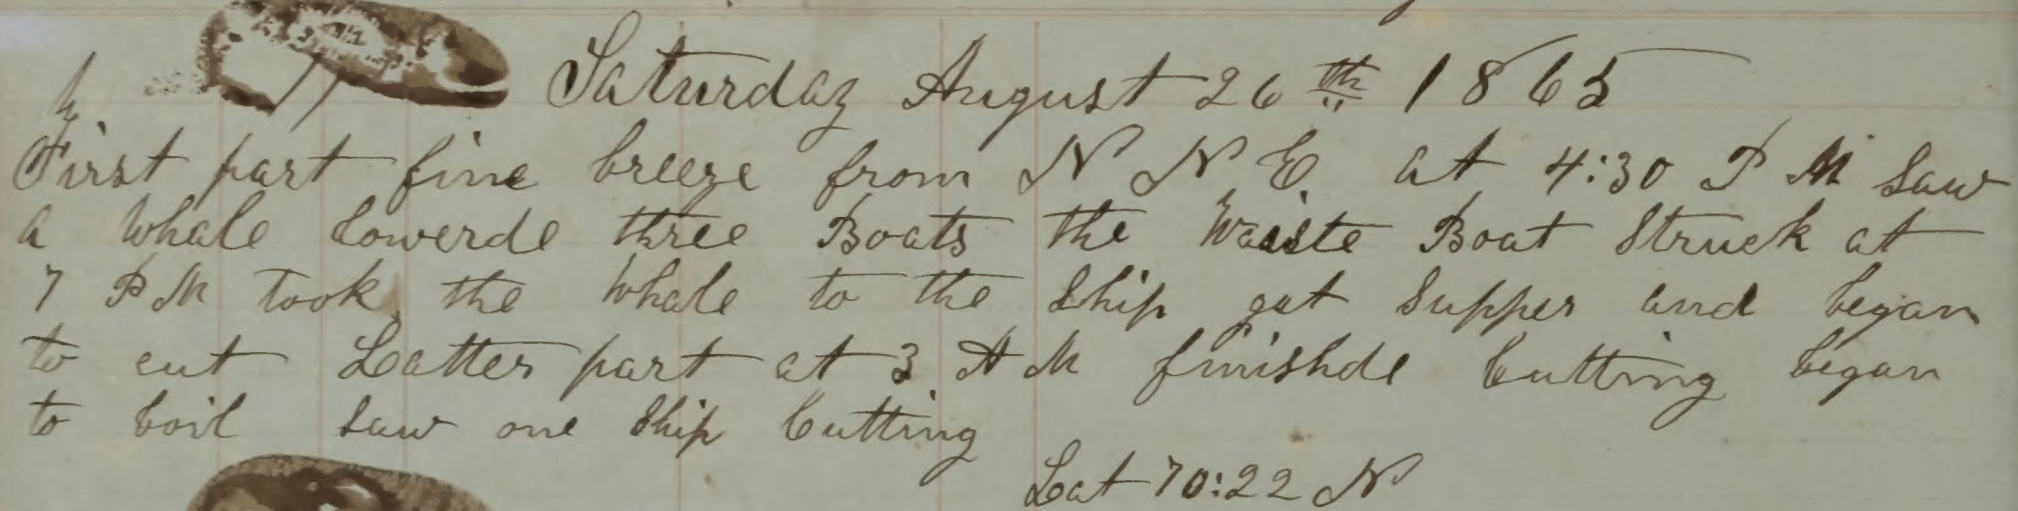 Saturday August 26th 1865
First part fine breeze from N N E at 4:30 P M Saw
a Whale Lowerde three Boats the Waiste Boat Struck at
7 P M took the Whale to the Ship got Supper and began
to cut Latter part at 3 A M finishde Cutting began
to boil Saw one Ship Cutting
Lat 70:22 N